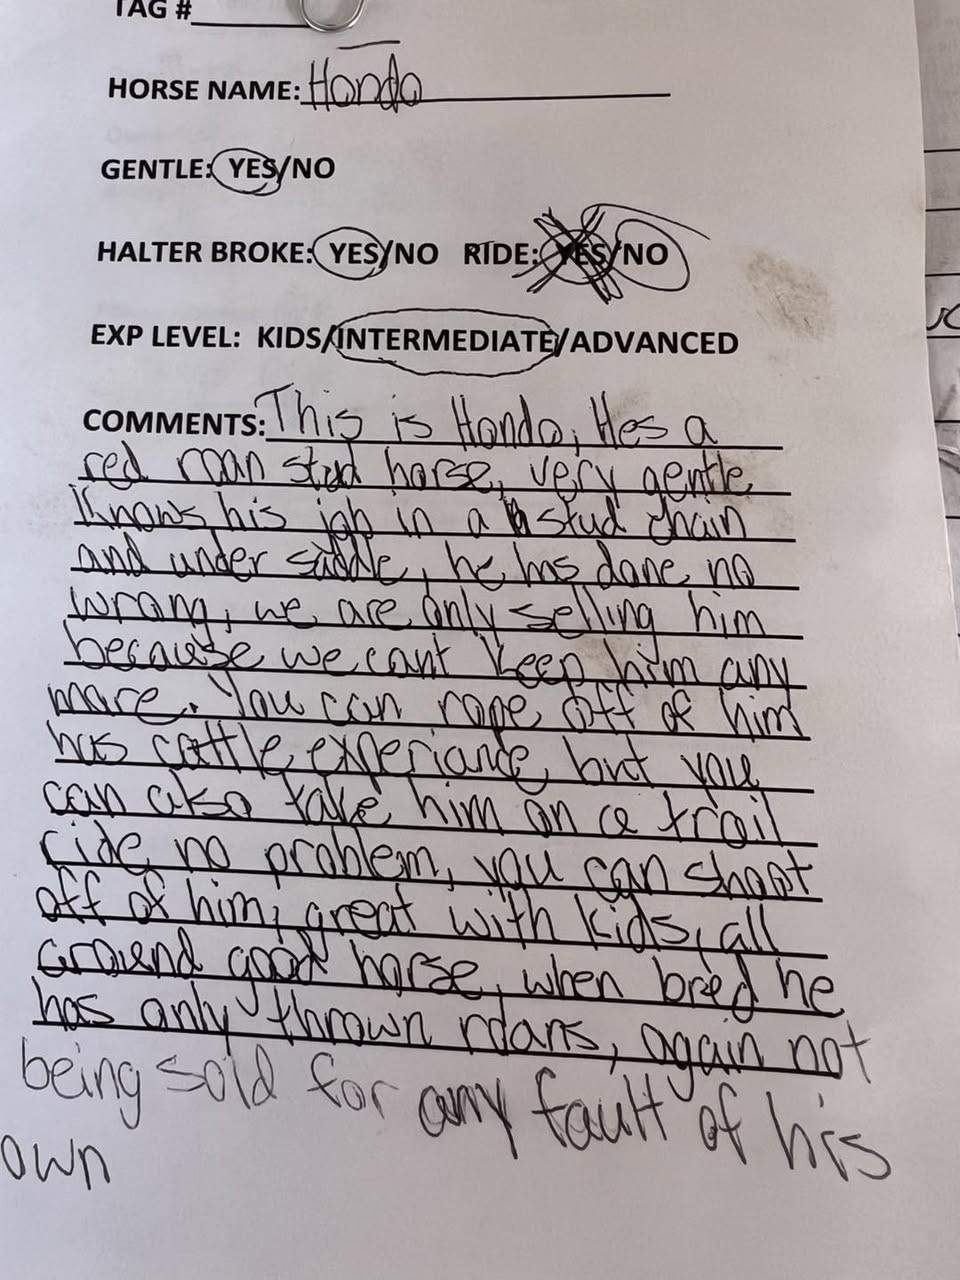 TAG #
HORSE NAME: Hondo
GENTLE: YES/NO
HALTER BROKE: YES/NO RIDE: YES/NO
EXP LEVEL: KIDS/INTERMEDIATE/ADVANCED
COMMENTS: This is Hondo, Hes a
red roan stud horse, very gentle
Knows his job in a stud chain
and under saddle, he has done no
wrong, we are only selling him
because we cant keep him any
more. You can rope off of him
has cattle experiance, but you
can also take him on a trail
ride no problem, you can shoot
off of him, great with kids, all
around good horse, when bred he
has only thrown roans, again not
being sold for any fault of his
own